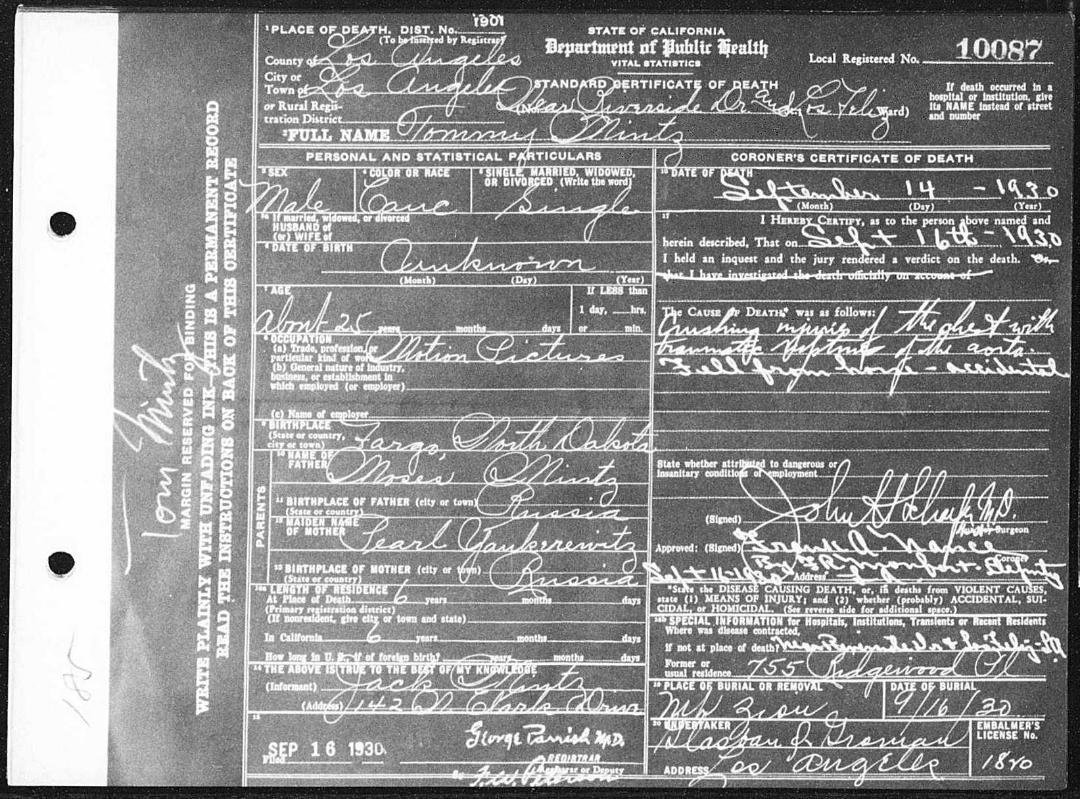 1901
¹PLACE OF DEATH. DIST. No.
(To be inserted by Registrar)
County of Los Angeles
City or
Town of Los Angeles
or Rural Regis-
tration District
STATE OF CALIFORNIA
Department of Public Health
VITAL STATISTICS
STANDARD CERTIFICATE OF DEATH
(No. Near Riverside Dr. and St.; Los Feliz Ward)
Local Registered No. 10087
If death occurred in a
hospital or institution, give
its NAME instead of street
and number
²FULL NAME Tommy Mintz
PERSONAL AND STATISTICAL PARTICULARS
³SEX
Male
⁴COLOR OR RACE
Cauc
⁵SINGLE, MARRIED, WIDOWED,
OR DIVORCED (Write the word)
Single
If married, widowed, or divorced
HUSBAND of
(or) WIFE of
⁶DATE OF BIRTH
Unknown
(Month) (Day) (Year)
⁷AGE
About 25 years months days
If LESS than
1 day, hrs.
or min.
⁸OCCUPATION
(a) Trade, profession, or
particular kind of work Motion Pictures
(b) General nature of industry,
business, or establishment in
which employed (or employer)
(c) Name of employer
⁹BIRTHPLACE
(State or country,
city or town) Fargo, North Dakota
PARENTS
¹⁰NAME OF
FATHER Moses Mintz
¹¹BIRTHPLACE OF FATHER (city or town)
(State or country) Russia
¹²MAIDEN NAME
OF MOTHER Pearl Yankerewitz
¹³BIRTHPLACE OF MOTHER (city or town)
(State or country) Russia
LENGTH OF RESIDENCE
At Place of Death 6 years months days
(Primary registration district)
(If nonresident, give city or town and state)
In California 6 years months days
How long in U. S., if of foreign birth? years months days
¹⁴THE ABOVE IS TRUE TO THE BEST OF MY KNOWLEDGE
(Informant) Jack Mintz
(Address) 142 N Clark Drive
¹⁵
Filed SEP 16 1930
George Parrish M.D.
REGISTRAR
Registrar or Deputy
CORONER'S CERTIFICATE OF DEATH
¹⁶DATE OF DEATH
September 14 - 1930
(Month) (Day) (Year)
¹⁷
I HEREBY CERTIFY, as to the person above named and
herein described, That on Sept 16th - 1930
I held an inquest and the jury rendered a verdict on the death. Or
that I have investigated the death officially on account of
The CAUSE OF DEATH* was as follows:
Crushing injuries of the chest with
traumatic rupture of the aorta.
Fell from horse - accidental
State whether attributed to dangerous or
insanitary conditions of employment
(Signed) John M.D.
Surgeon
Approved: (Signed) Frank A. Nance
Coroner
Deputy
Sept 16 1930 Address L A
*State the DISEASE CAUSING DEATH, or, in deaths from VIOLENT CAUSES,
state (1) MEANS OF INJURY; and (2) whether (probably) ACCIDENTAL, SUI-
CIDAL, or HOMICIDAL. (See reverse side for additional space.)
SPECIAL INFORMATION for Hospitals, Institutions, Transients or Recent Residents
Where was disease contracted,
if not at place of death? near Riverside Dr & Los Feliz
Former or
usual residence 755 Ridgewood Pl
¹⁹PLACE OF BURIAL OR REMOVAL
Mt Zion
DATE OF BURIAL
9/16/30
²⁰UNDERTAKER
Glasban & Groman
ADDRESS Los Angeles
EMBALMER'S
LICENSE No.
1820
MARGIN RESERVED FOR BINDING
WRITE PLAINLY WITH UNFADING INK—THIS IS A PERMANENT RECORD
READ THE INSTRUCTIONS ON BACK OF THIS CERTIFICATE
Tom Mintz
185